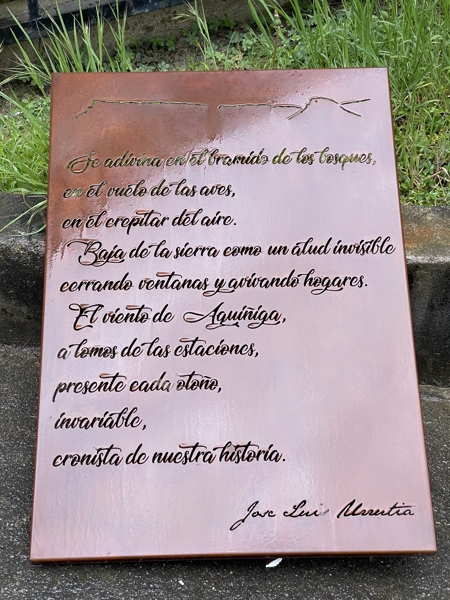 Se adivina en el bramido de los bosques,
en el vuelo de las aves,
en el crepitar del aire.
Baja de la sierra como un alud invisible
cerrando ventanas y avivando hogares.
El viento de Aguiñiga,
a lomos de las estaciones,
presente cada otoño,
invariable,
cronista de nuestra historia.
Jose Luis Urrutia